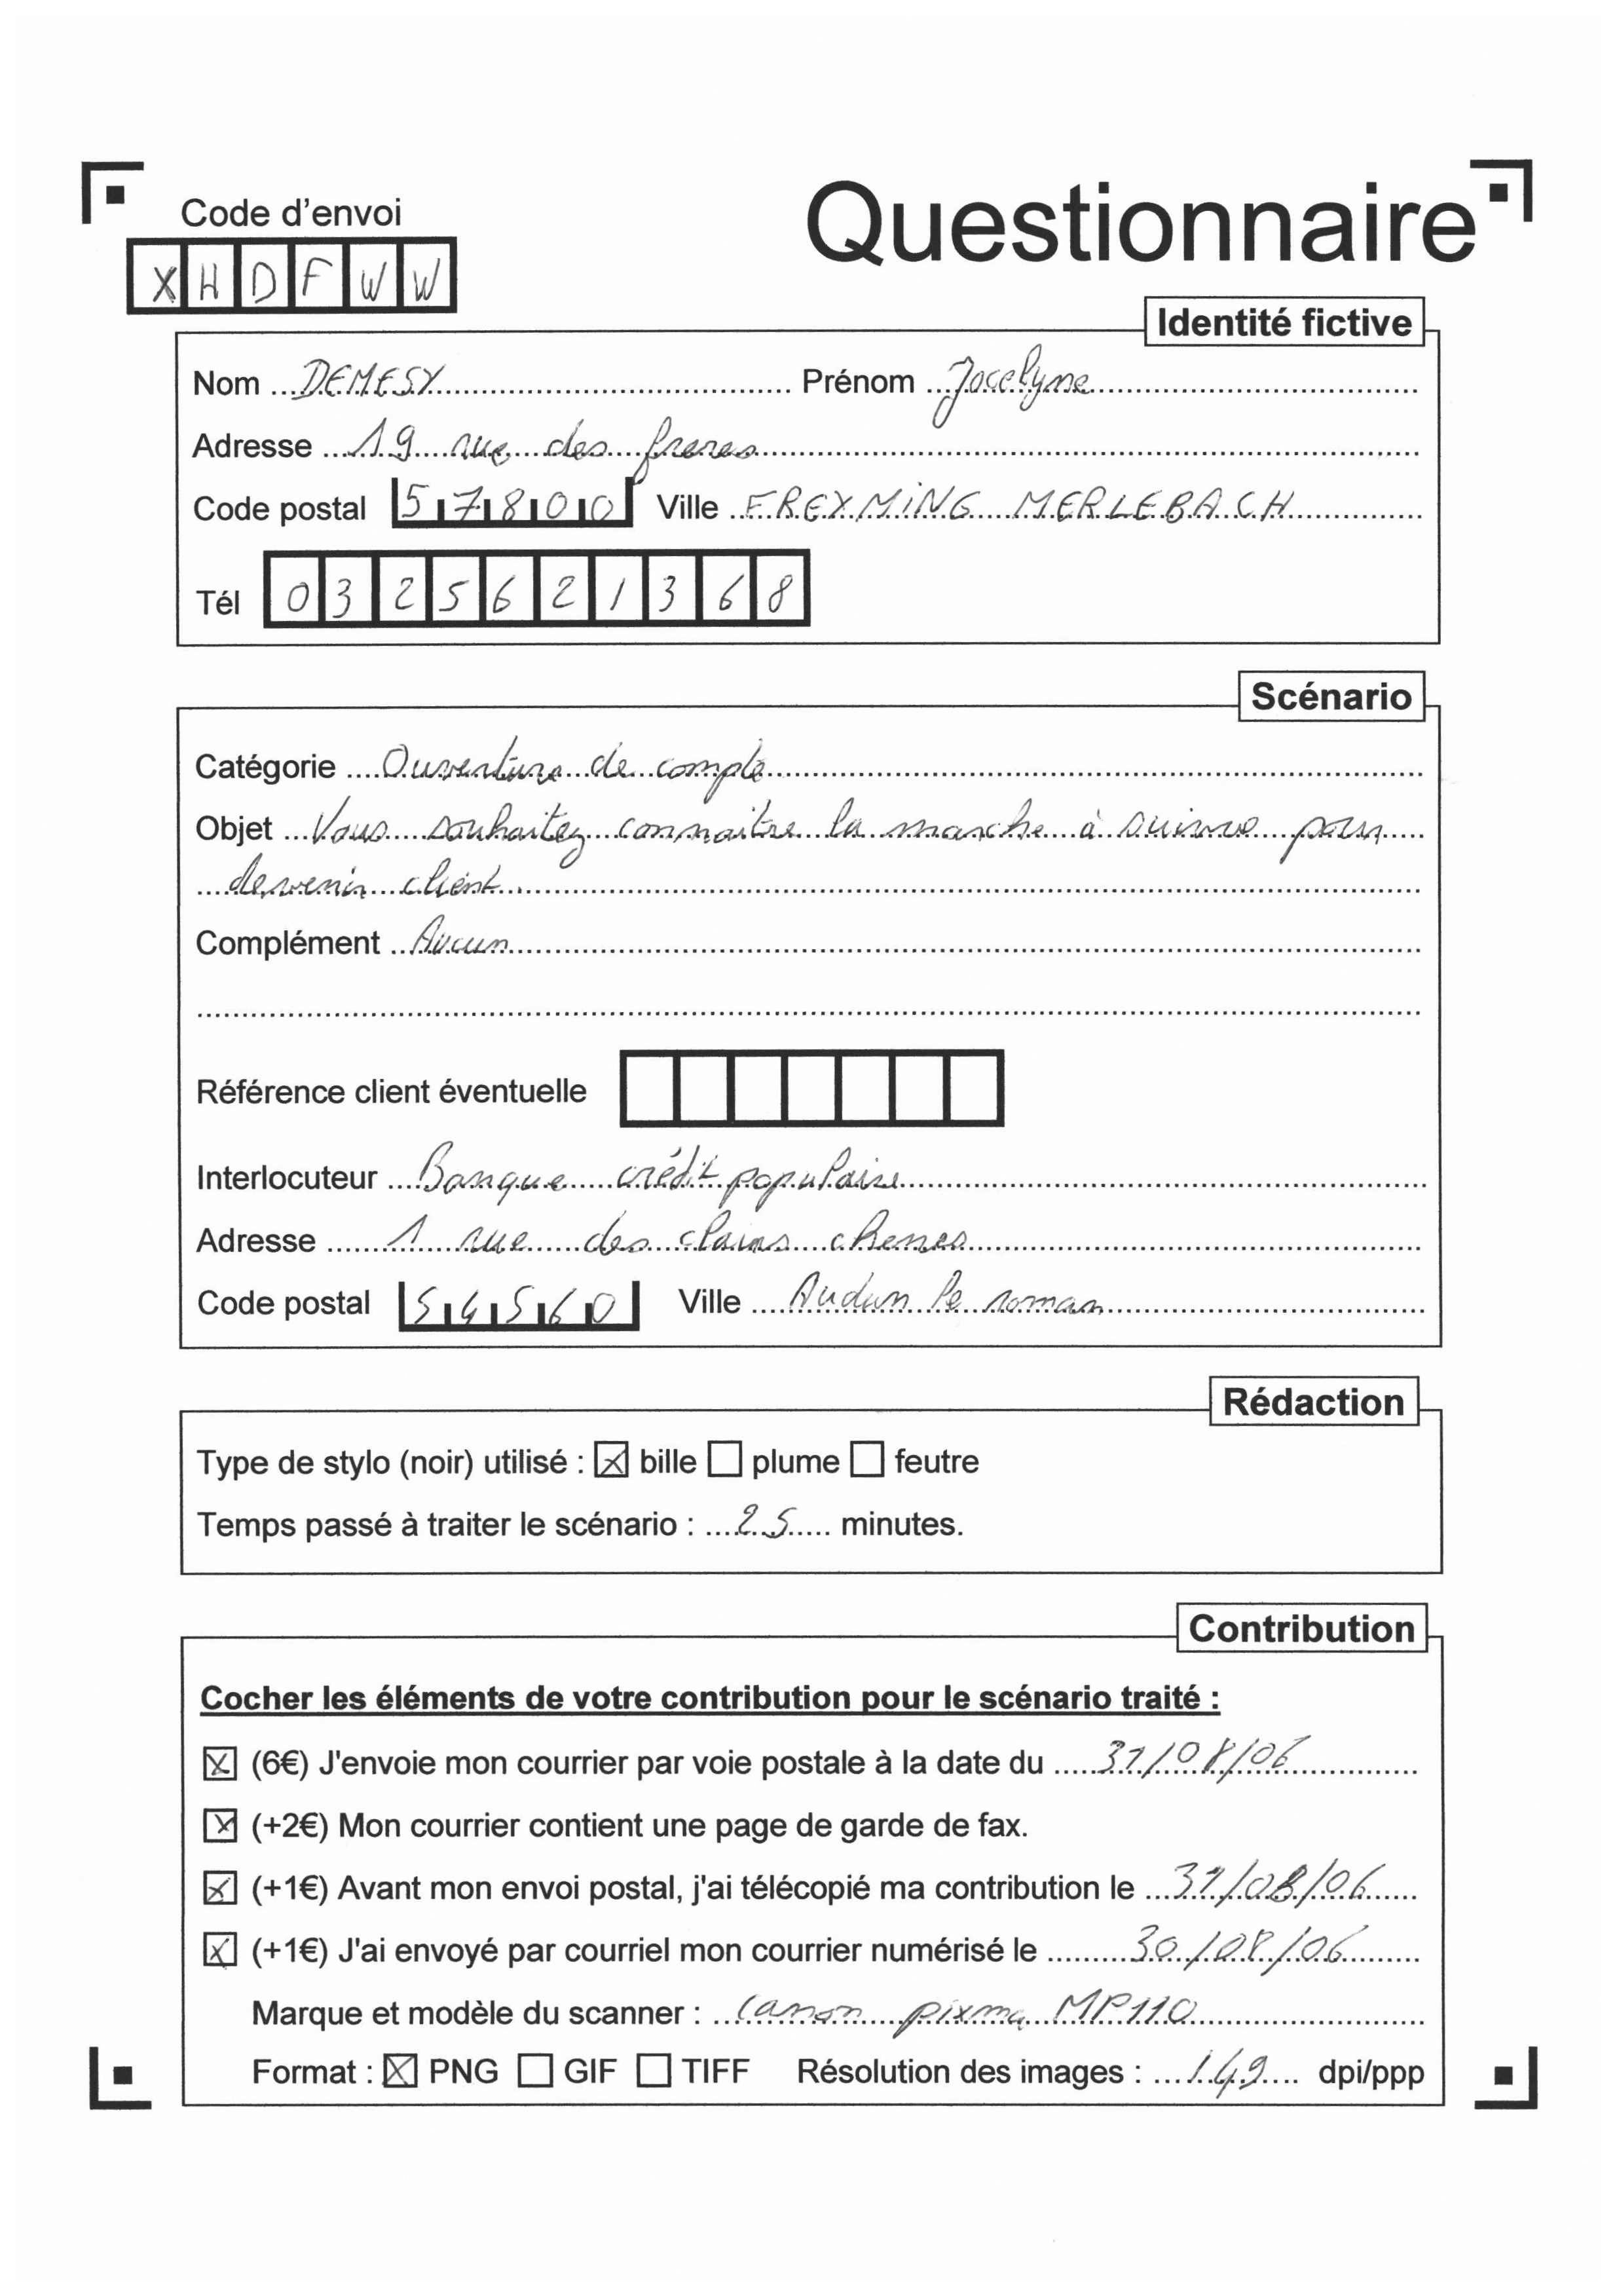 Code d'envoi
Questionnaire
XHDFWW
Identité fictive
Nom DEMESY Prénom Jocelyne
Adresse 19 rue des freres
Code postal 57800 Ville FREXMiNG MERLEBACH
Tél 0325621368
Scénario
Catégorie Ouverture de compte
Objet Vous souhaitez connaitre la marche à suivre pour
devenir client.
Complément Aucun
Référence client éventuelle
Interlocuteur Banque crédit populaire
Adresse 1 rue des clairs chenes
Code postal 54560 Ville Audun le roman
Rédaction
Type de stylo (noir) utilisé : ☒ bille ☐ plume ☐ feutre
Temps passé à traiter le scénario : 25 minutes.
Contribution
Cocher les éléments de votre contribution pour le scénario traité :
☒ (6€) J'envoie mon courrier par voie postale à la date du 31/08/06
☒ (+2€) Mon courrier contient une page de garde de fax.
☒ (+1€) Avant mon envoi postal, j'ai télécopié ma contribution le 31/08/06
☒ (+1€) J'ai envoyé par courriel mon courrier numérisé le 30/08/06
Marque et modèle du scanner : Canon pixma MP110
Format : ☒ PNG ☐ GIF ☐ TIFF Résolution des images : 149 dpi/ppp